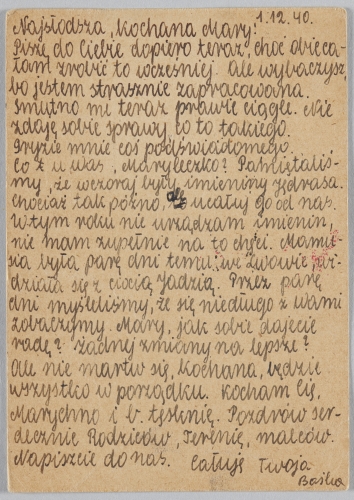 1.12.40.
Najsłodsza, kochana Mary!
Piszę do Ciebie dopiero teraz, choć obieca-
łam zrobić to wcześniej. Ale wybaczysz,
bo jestem strasznie zapracowana.
Smutno mi teraz prawie ciągle. Nie
zdaję sobie sprawy, co to takiego.
Gryzie mnie coś podświadomego.
Co z u was, Maryleczko? Pamiętaliś-
my, że wczoraj były imieniny Jędrasa.
Chociaż tak późno, ucałuj go od nas.
W tym roku nie urządzam imienin,
nie mam zupełnie na to chęci. Mamu-
sia była parę dni temu we Lwowie, wi-
działa się z ciocią Jadzią. Przez parę
dni myśleliśmy, że się niedługo z Wami
zobaczymy. Mary, jak sobie dajecie
radę? Żadnej zmiany na lepsze?
Ale nie martw się, kochana, będzie
wszystko w porządku. Kocham Cię,
Marychno i b. tęsknię. Pozdrów ser-
decznie Rodziców, Terenię, malców.
Napiszcie do nas. Całuję Twoja
Baśka